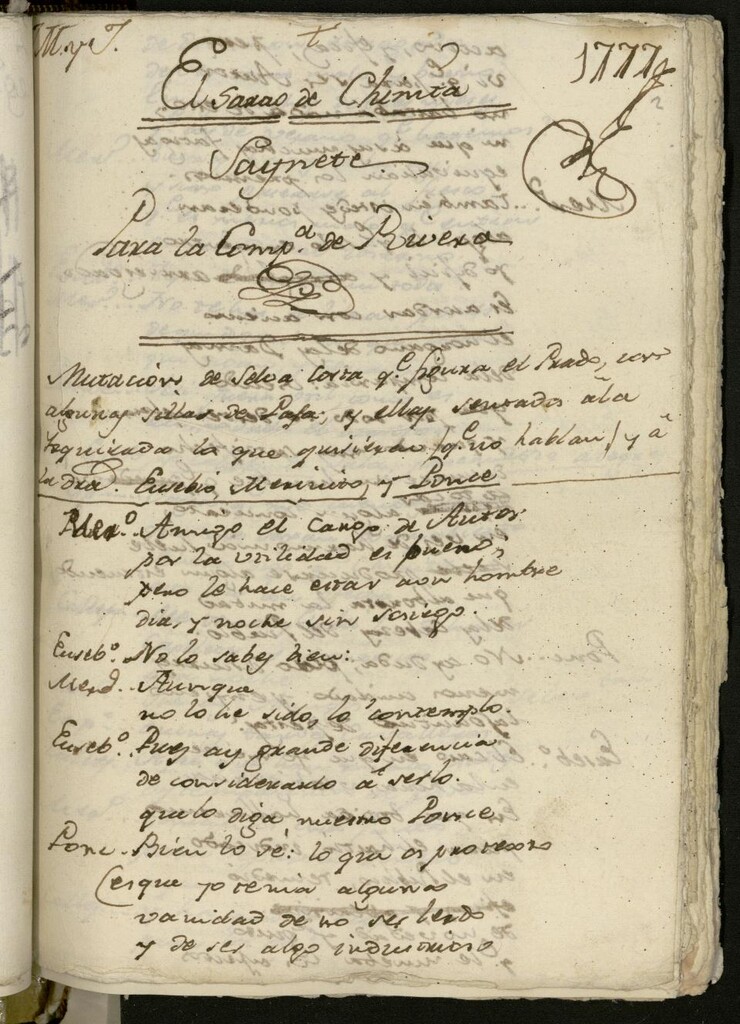 M. y T.
1777
El Sarao de Chinita
Saynete
Para la Comp.a de Rivera
Mutacion de selva corta q.e figura el Prado, con
algunas sillas de Paja, y ellas sentadas â la
izquierda la que quisieren (q.e no hablan) y â
la dra. Eusebio, Merinito, y Ponce
Mer.o Amigo el cargo de Autor
por la utilidad es bueno;
pero le hace estar a un hombre
dia, y noche sin sosiego.
Euseb.o No lo sabes bien:
Mer.o Aunque
no lo he sido, lo contemplo.
Euseb.o Pues ay grande diferencia
de considerarlo â serlo.
que lo diga nuestro Ponce
Ponc. Bien lo sé: lo que os protesto
es que yo tenia alguna
vanidad de no ser lerdo
y de ser algo industrioso